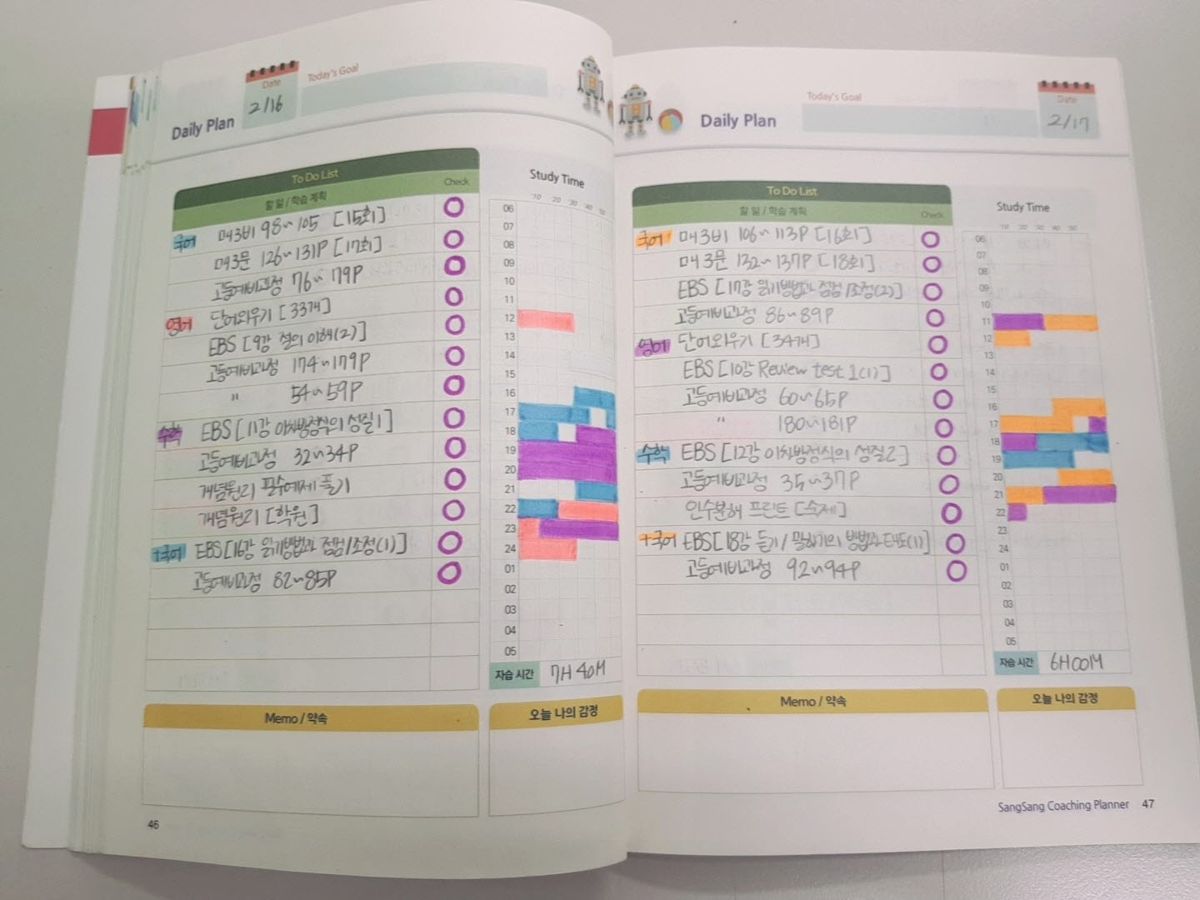 Daily Plan
Date
2/16
Today's Goal
To Do List
할 일 / 학습 계획
Check
국어 매3비 98~105 [15회]
매3문 126~131P [17회]
고등예비과정 76~79P
영어 단어외우기 [33개]
EBS [9강 절의 이해(2)]
고등예비과정 174~179P
" 54~59P
수학 EBS [11강 이차방정식의 성질1]
고등예비과정 32~34P
개념원리 필수예제 풀기
개념원리 [학원]
+국어 EBS [16강 읽기방법과 점검/조정(1)]
고등예비과정 82~85P
Study Time
'10 '20 '30 '40 '50
06
07
08
09
10
11
12
13
14
15
16
17
18
19
20
21
22
23
24
01
02
03
04
05
자습 시간 7H 40M
Memo / 약속
오늘 나의 감정
46
Daily Plan
Today's Goal
Date
2/17
To Do List
할 일 / 학습 계획
Check
국어 매3비 106~113P [16회]
매3문 132~137P [18회]
EBS [17강 읽기방법과 점검/조정(2)]
고등예비과정 86~89P
영어 단어외우기 [34개]
EBS [10강 Review test 1(1)]
고등예비과정 60~65P
" 180~181P
수학 EBS [12강 이차방정식의 성질2]
고등예비과정 35~37P
인수분해 프린트 [숙제]
+국어 EBS [18강 듣기/말하기의 방법과 태도(1)]
고등예비과정 92~94P
Study Time
'10 '20 '30 '40 '50
06
07
08
09
10
11
12
13
14
15
16
17
18
19
20
21
22
23
24
01
02
03
04
05
자습 시간 6H 00M
Memo / 약속
오늘 나의 감정
SangSang Coaching Planner 47